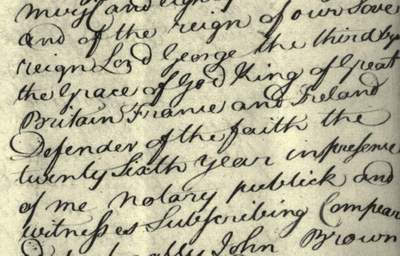 and of the reign of our Sove
reign Lord George the third by
the Grace of God King of Great
Britain France and Ireland
Defender of the faith the
twenty Sixth year in presence
of me Notary publick and
witnesses Subscribing Compear
John Brown